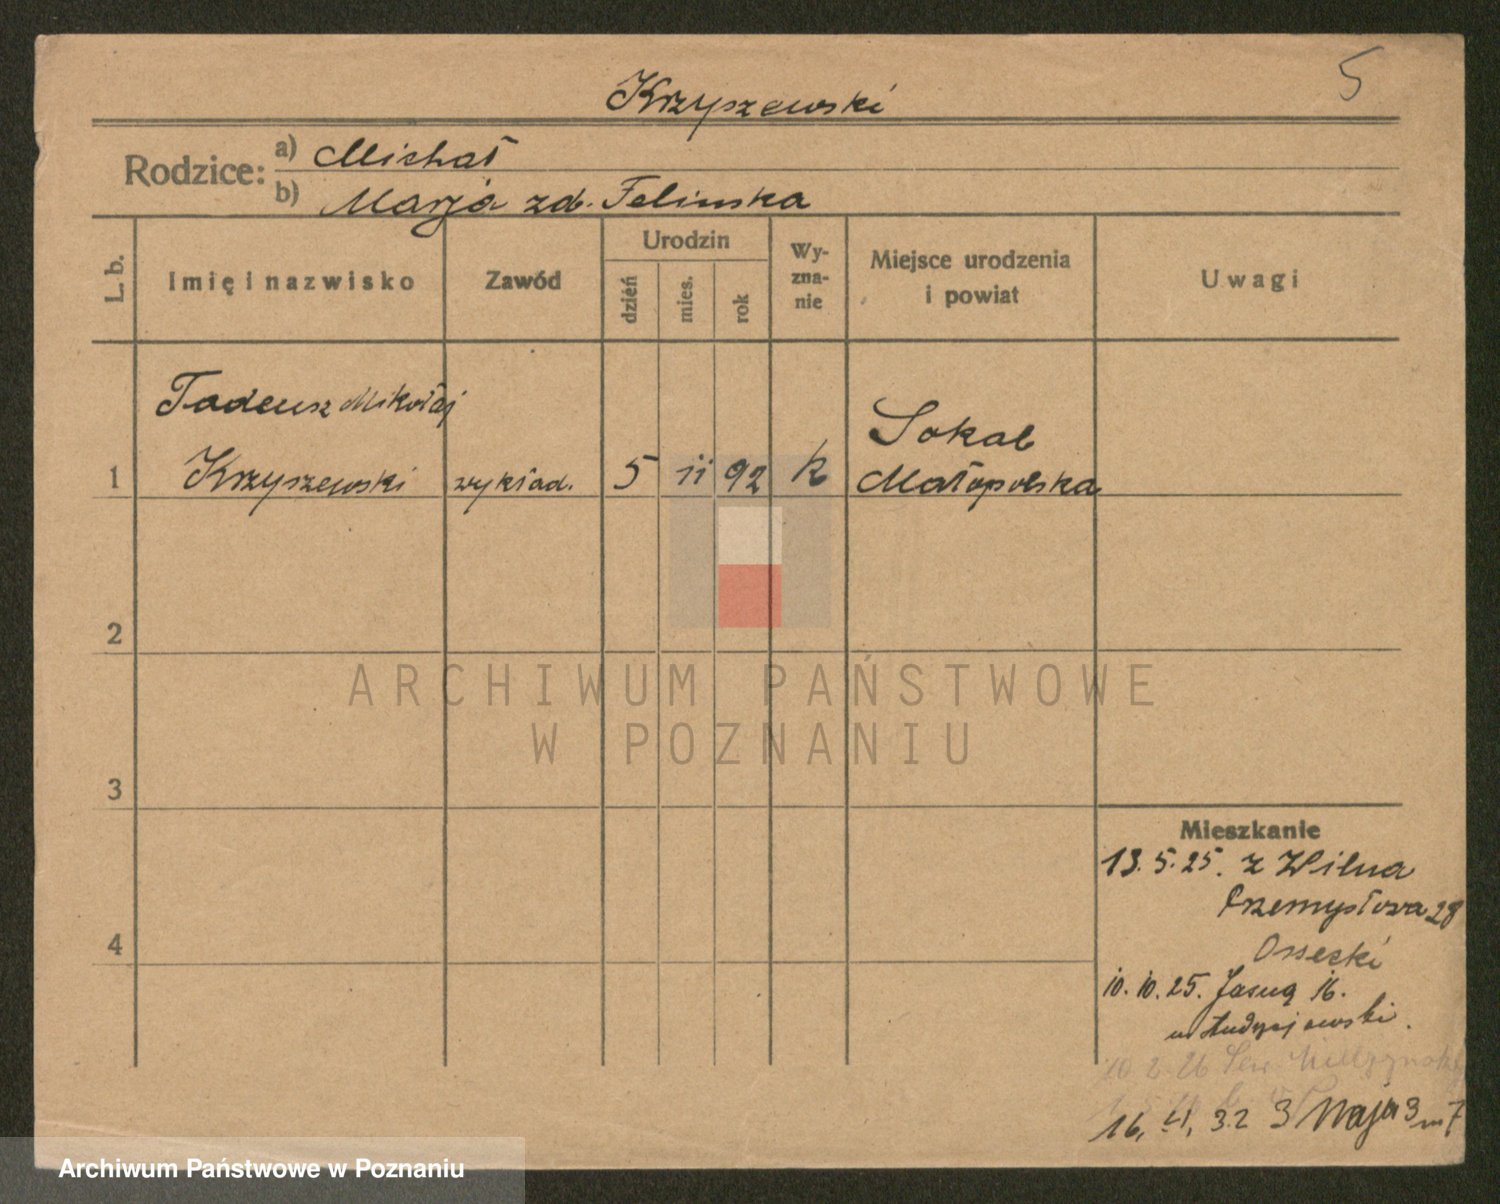 5
Krzyszewski
Rodzice: a) Michał
b) Marja zd. Felinska
L. b.
Imię i nazwisko
Zawód
Urodzin
dzień
mies.
rok
Wy-
zna-
nie
Miejsce urodzenia
i powiat
Uwagi
Tadeusz Mikołaj
Sokal
1 Krzyszewski wykład. 5 11 92 k Małopolska
2
ARCHIWUM PAŃSTWOWE
W POZNANIU
3
Mieszkanie
13. 5. 25. z Wilna
Przemysłowa 28
Ossecki
4
10. 10. 25. Jasną 16.
10 2 26
16, 3 Maja 3 m 7
Archiwum Państwowe w Poznaniu